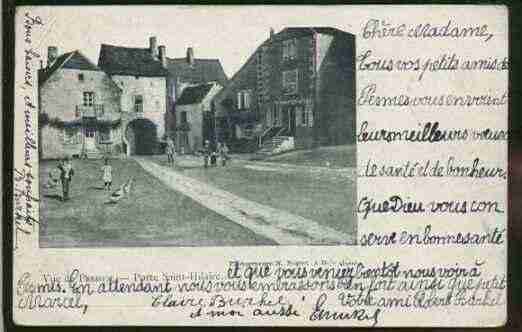 Chère Madame,
Tous vos petits amis de
Pesmes vous envoient
leurs meilleurs vœux
de santé et de bonheur.
Que Dieu vous con
serve en bonne santé
et que vous veniez bientôt nous voir à
Pesmes. En attendant nous vous embrassons bien fort ainsi que petit
Marcel,
Claire Burkel
Votre ami Robert Burkel
et moi aussi
Burkel
Vue de Pesmes. — Porte Saint-Hilaire.
et meilleur souvenir